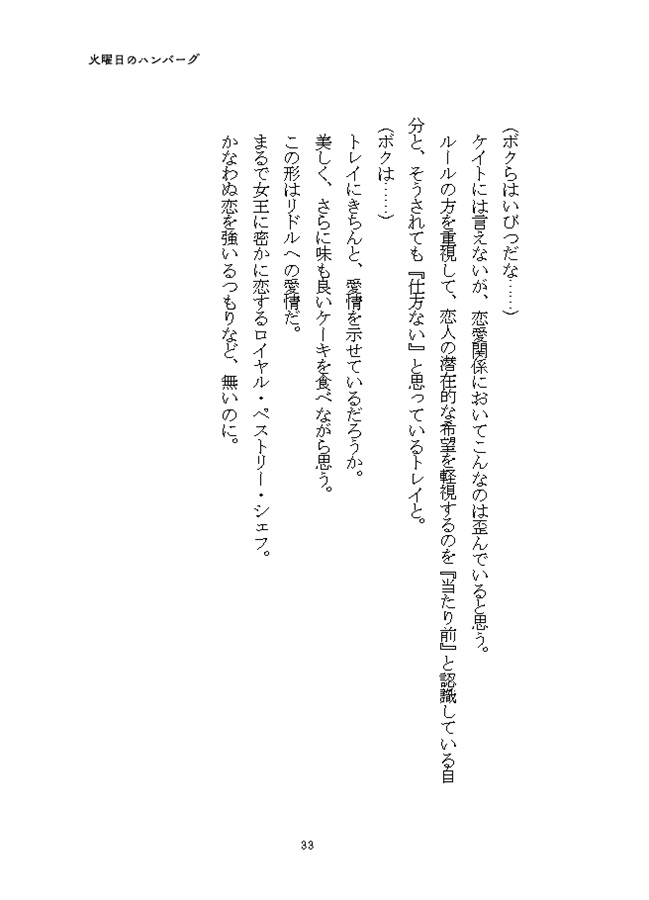 火曜日のハンバーグ
(ボクらはいびつだな……)
ケイトには言えないが、恋愛関係においてこんなのは歪んでいると思う。
ルールの方を重視して、恋人の潜在的な希望を軽視するのを『当たり前』と認識している自
分と、そうされても『仕方ない』と思っているトレイと。
(ボクは……)
トレイにきちんと、愛情を示せているだろうか。
美しく、さらに味も良いケーキを食べながら思う。
この形はリドルへの愛情だ。
まるで女王に密かに恋するロイヤル・ペストリー・シェフ。
かなわぬ恋を強いるつもりなど、無いのに。
33